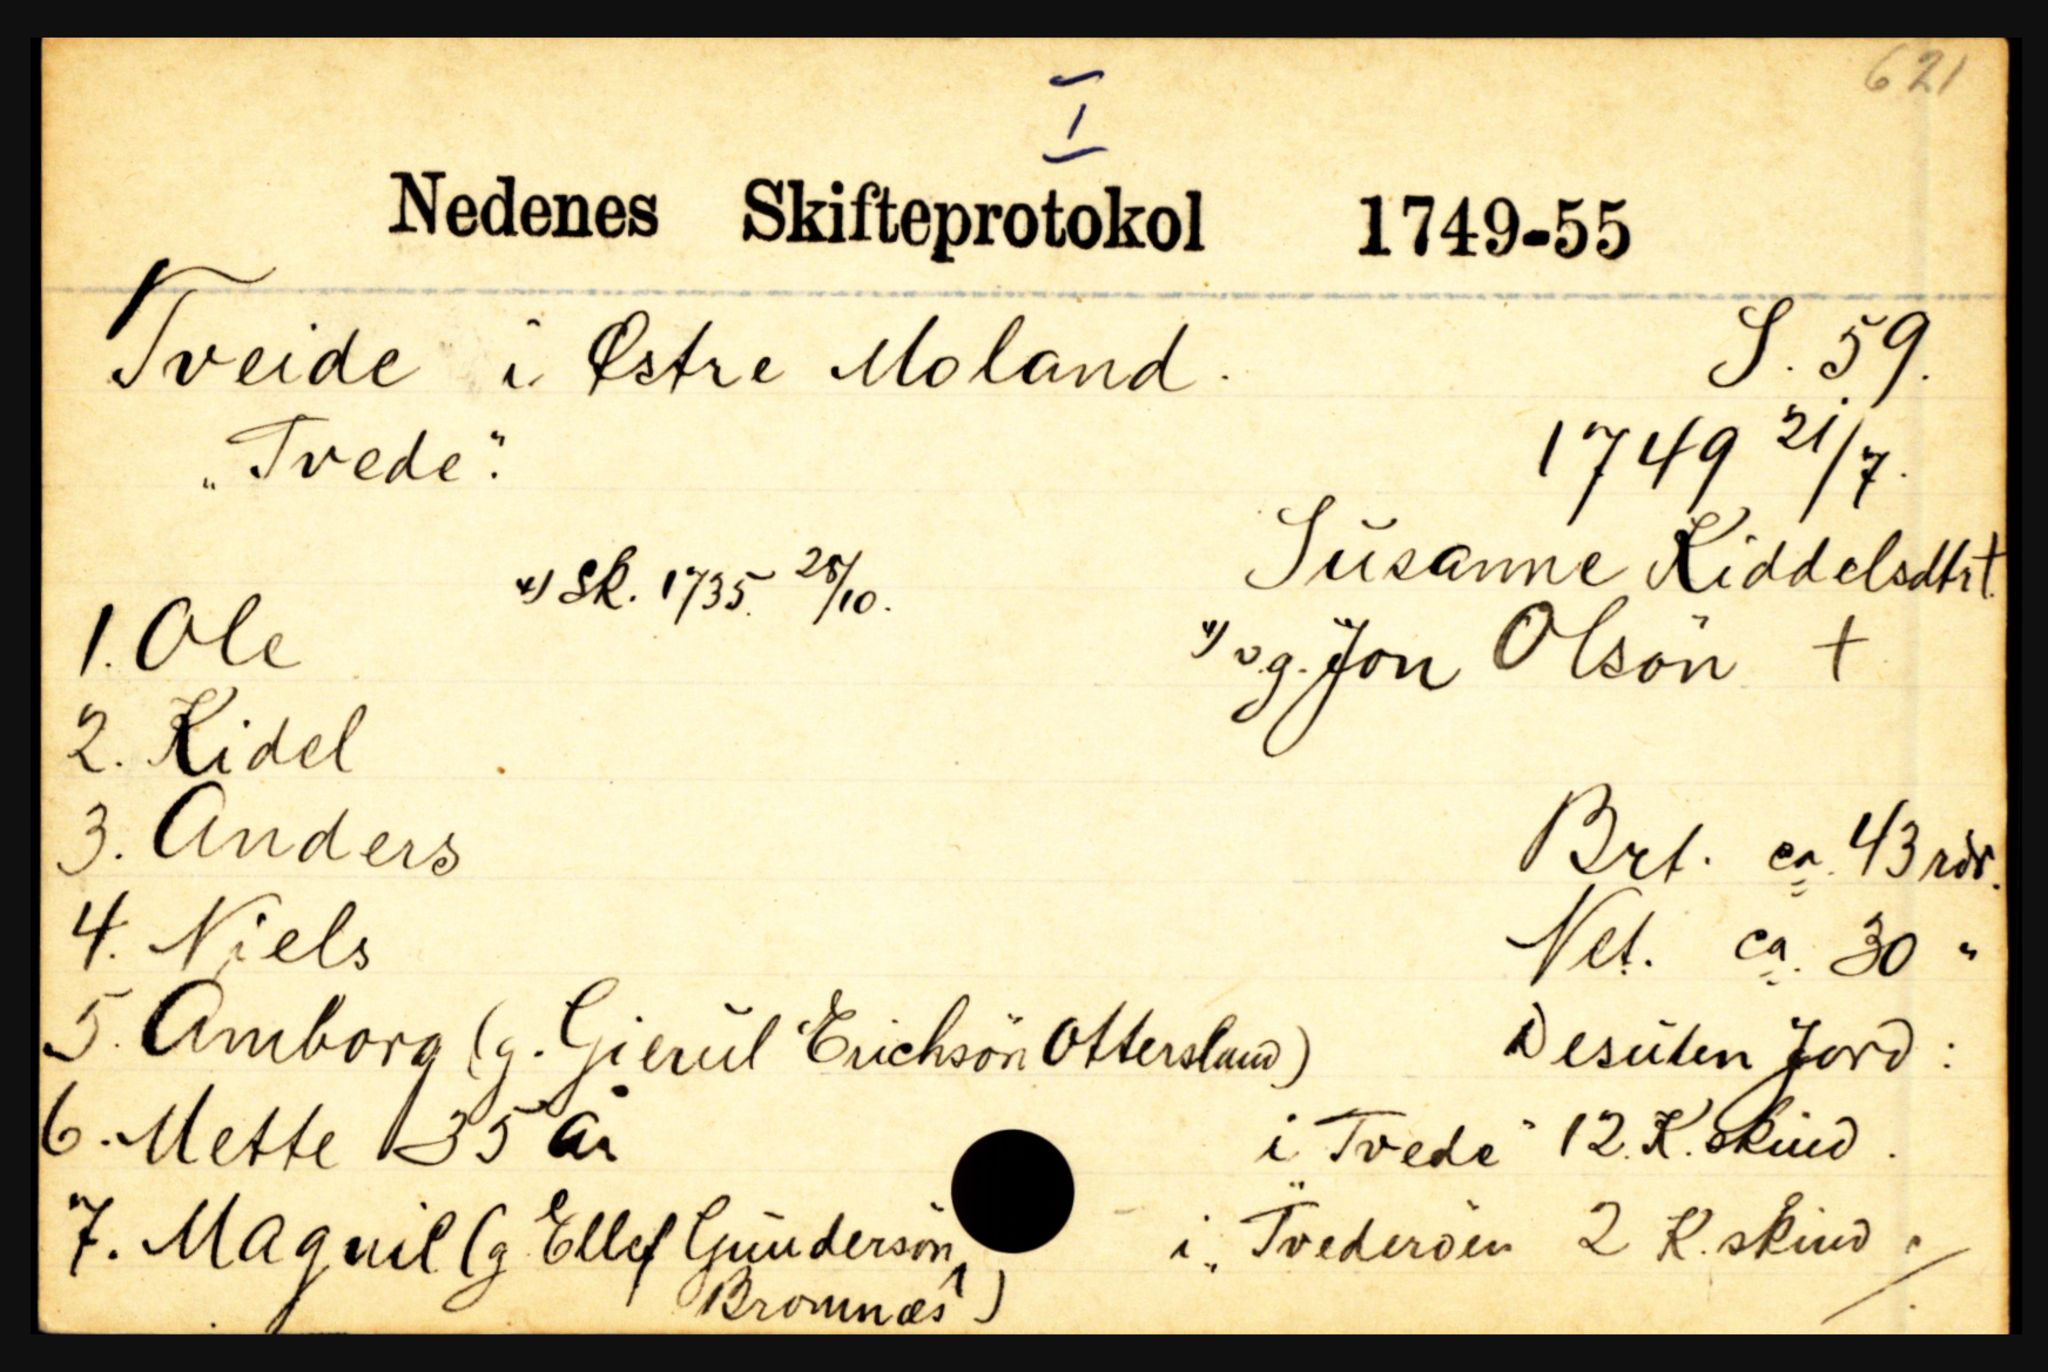 621
I
Nedenes Skifteprotokol 1749-55
Tveide i Østre Moland. S. 59.
„Tvede“. 1749 21/7.
Susanne Kiddelsdtr †
*) Sk. 1735. 28/10.
1. Ole *) v.g. Jon Olsön †
2. Kidel
3. Anders Brt. ca. 43 rdr.
4. Niels Net. ca. 30 "
5. Amborg (g. Gierul Erichsön Ottersland) Desuten Jord:
6. Mette 35 år i „Tvede“ 12 K. skind.
7. Magnil (g. Ellef Gundersön, i „Tvederöen 2 K. skind.
Bromnæs)